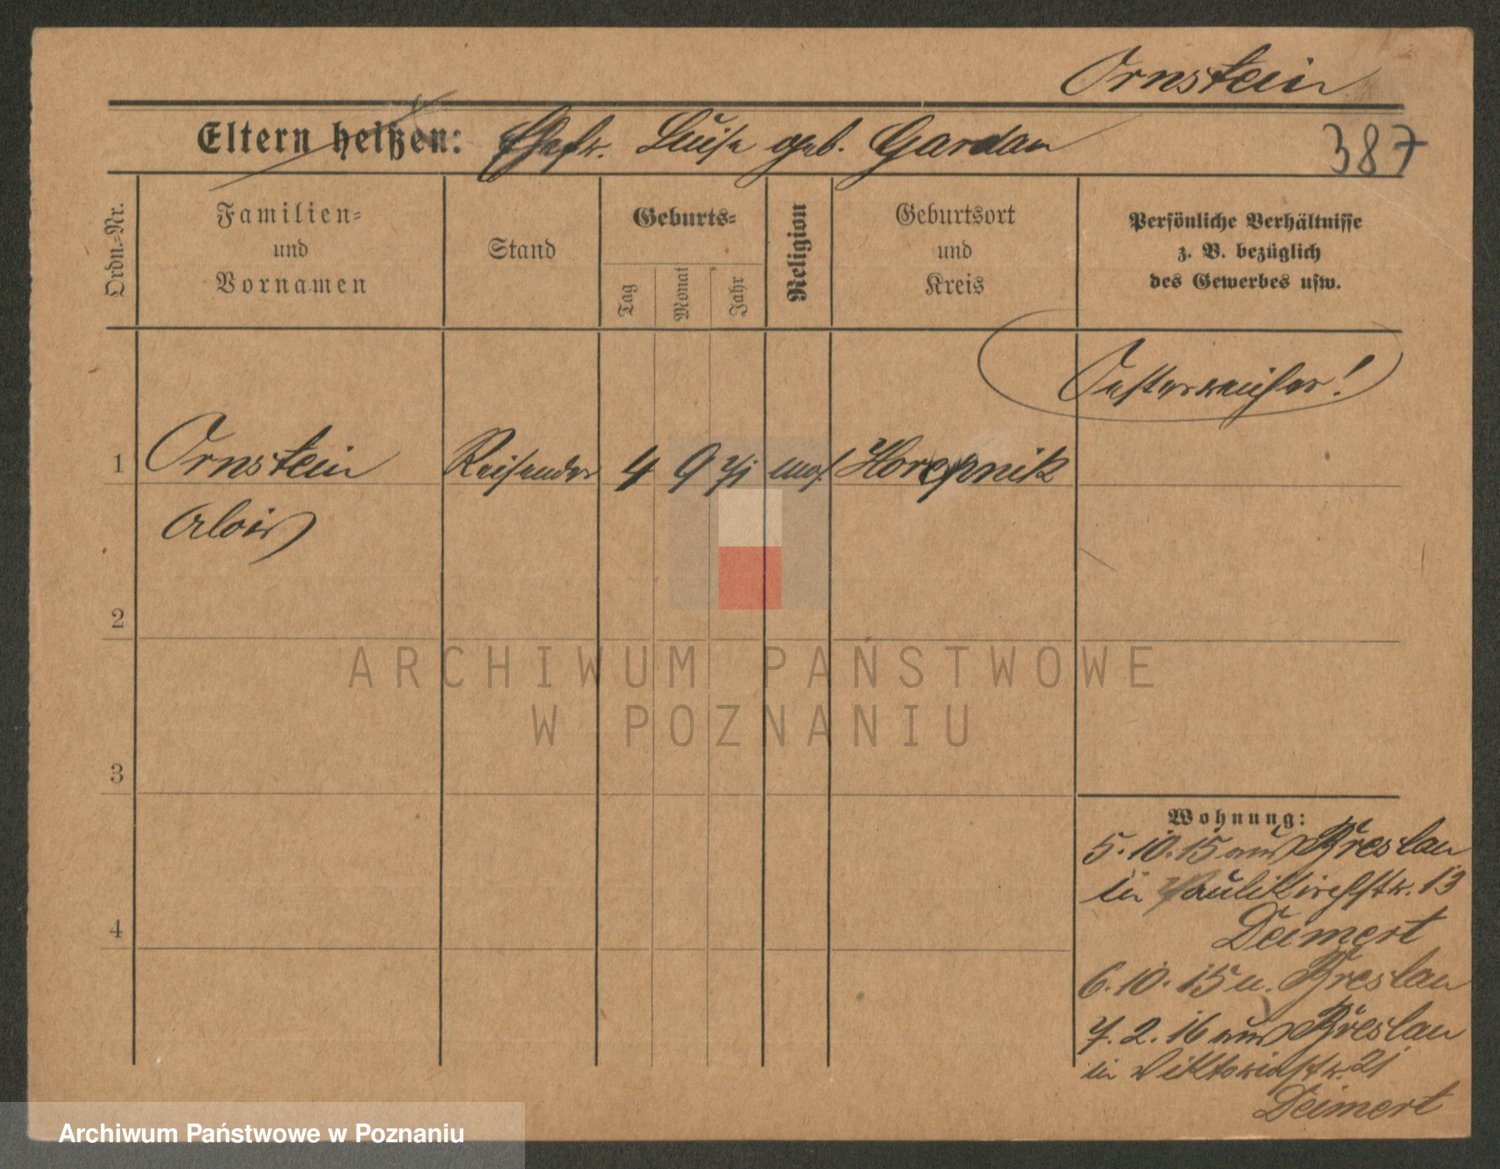 Ornstein
Eltern heißen: Ehefr. Luise geb. Gardan
387
Ordn.-Nr.
Familien-
und
Vornamen
Stand
Geburts-
Tag
Monat
Jahr
Religion
Geburtsort
und
Kreis
Persönliche Verhältnisse
z. B. bezüglich
des Gewerbes usw.
Oesterreicher!
1 Ornstein Reisender 4 9 71 mos. Horepnik
Alois
2
3
4
Wohnung:
5.10.15 aus Breslau
in Paulikirchstr. 13
Deimert
6.10.15 n. Breslau
7.2.16 aus Breslau
in Viktoriastr. 21
Deimert
ARCHIWUM PAŃSTWOWE
W POZNANIU
Archiwum Państwowe w Poznaniu